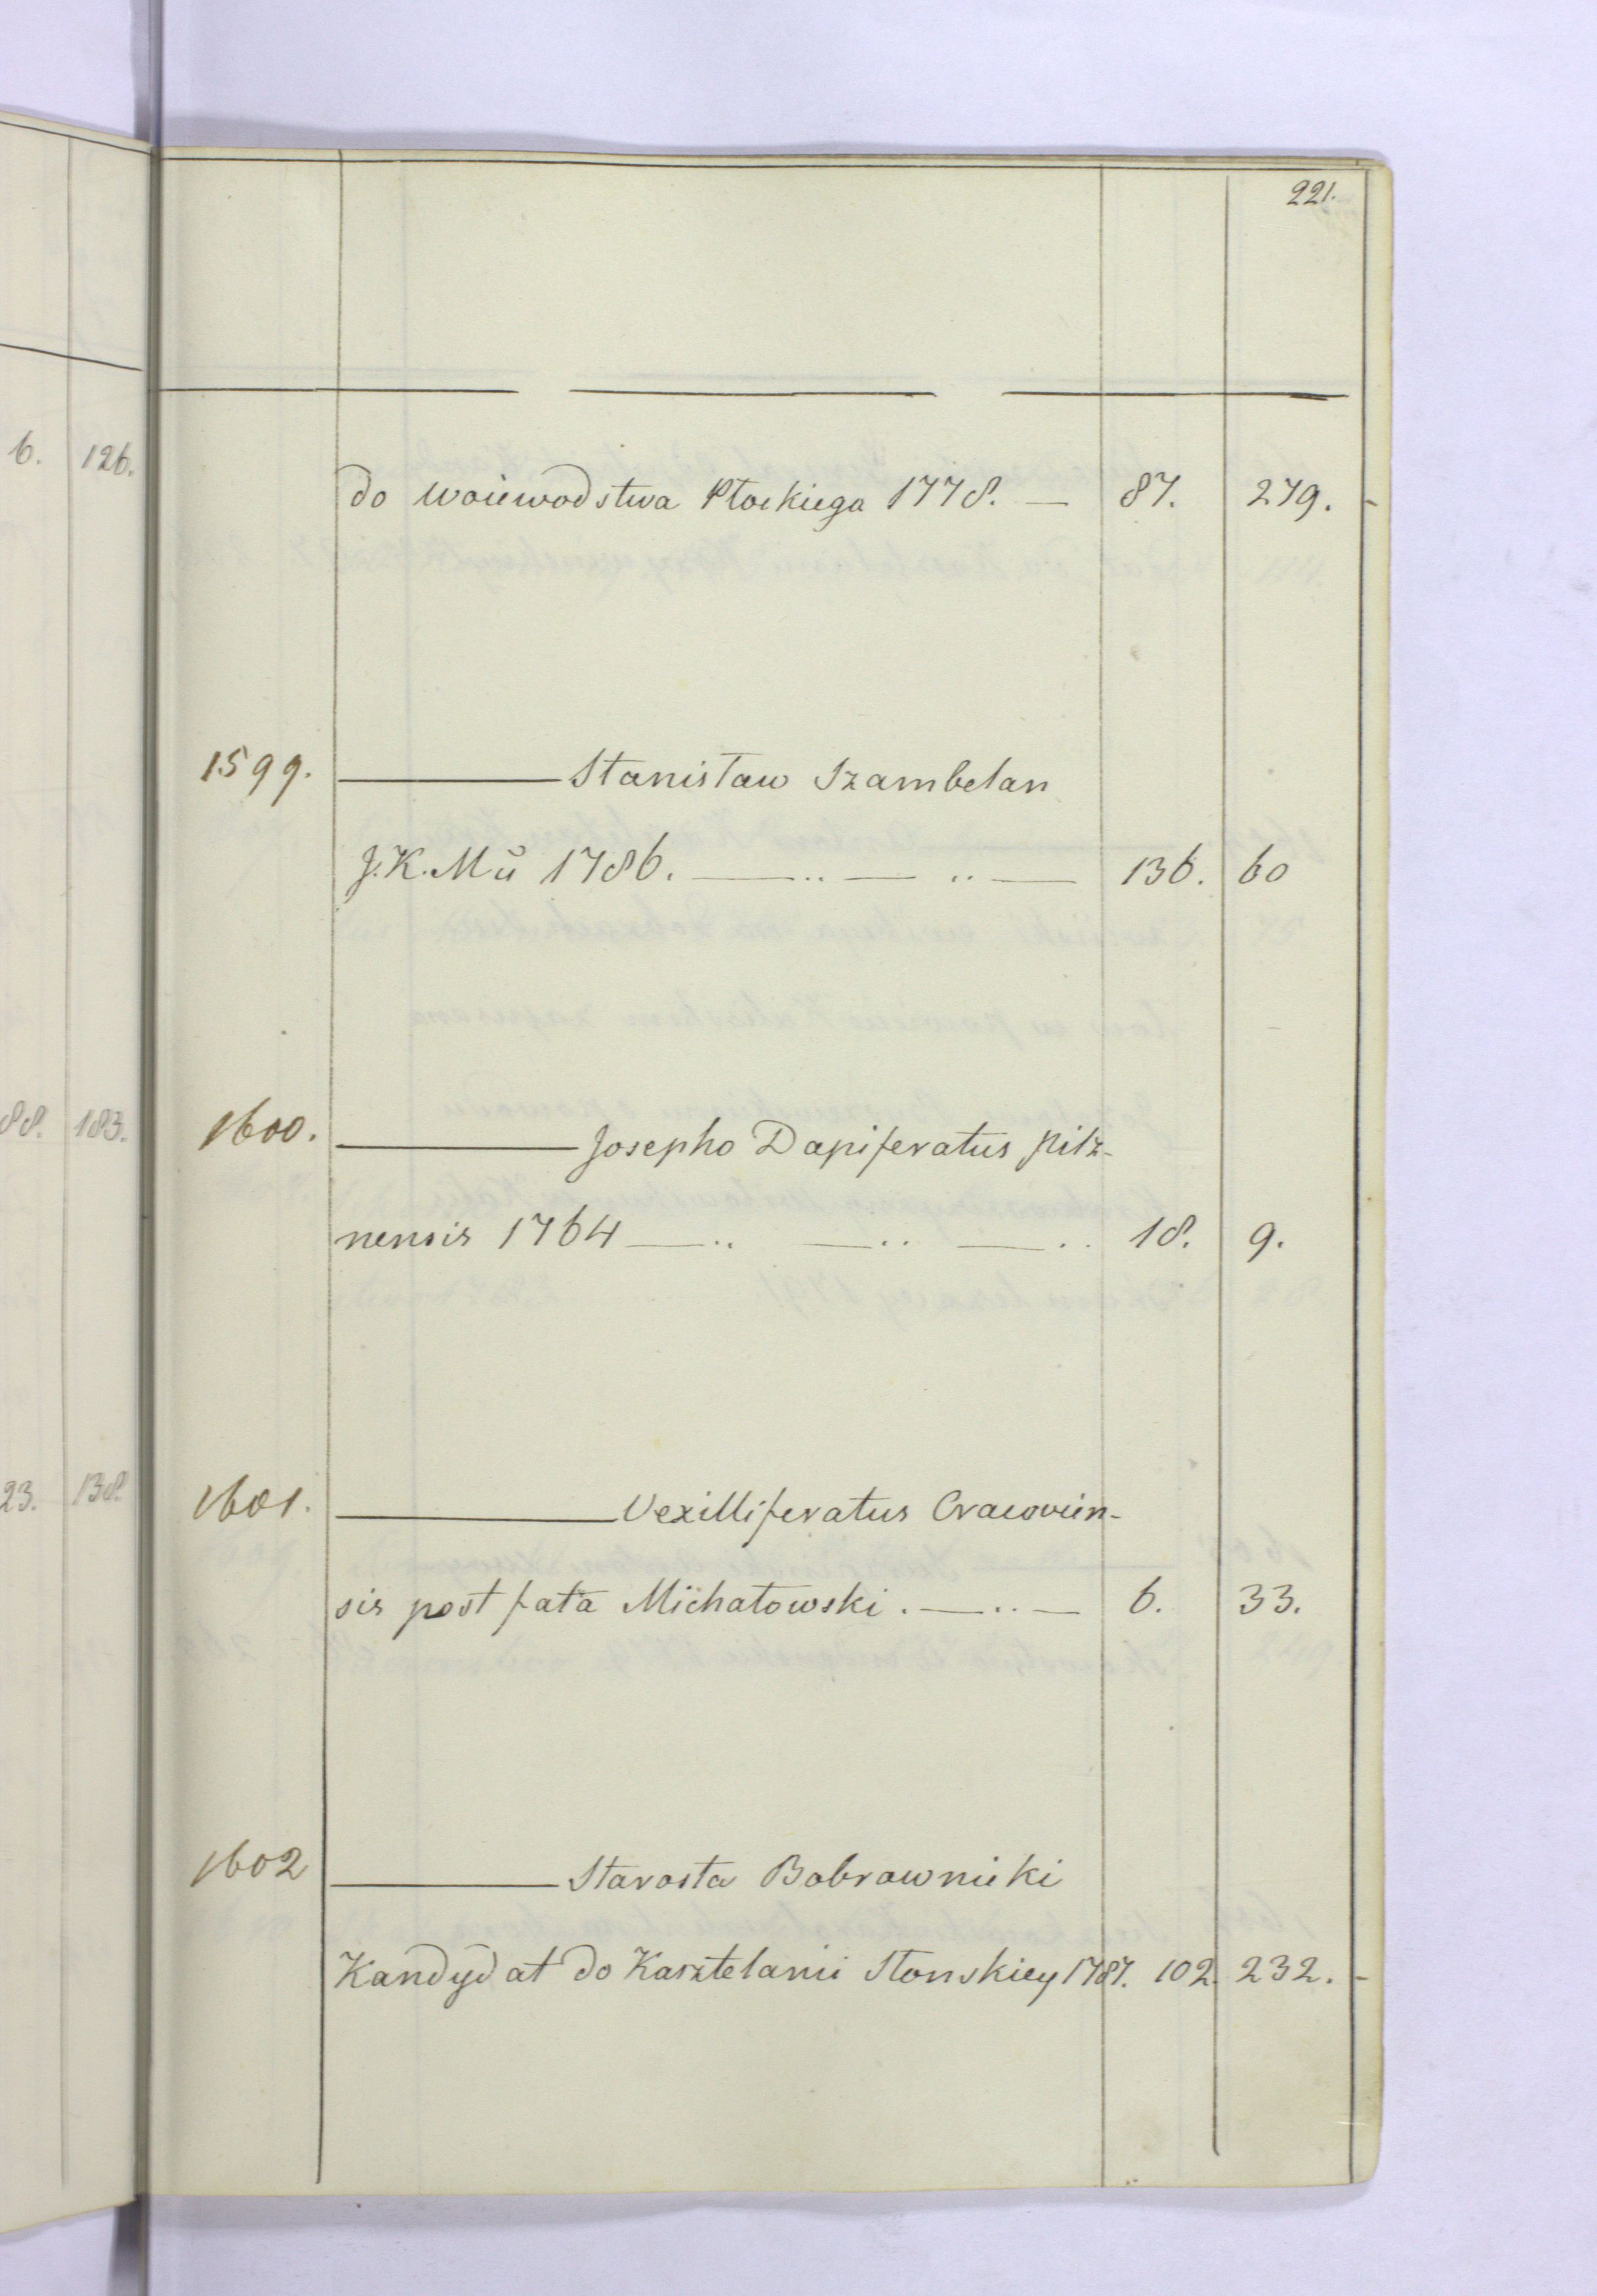 221.
6. 126.
do woiewodstwa Płockiego 1778. — 87. 279. -
1599. ——— Stanisław Szambelan
J.K.Mci 1786. — .. — .. — 136. 60
88. 183.
1600. ——— Josepho Dapiferatus Pilz-
nensis 1764 — .. — .. — .. 18. 9.
23. 138.
1601. ——— Vexilliferatus Cracovien-
sis post fata Michałowski . — .. — 6. 33.
1602 ——— Starosta Bobrownicki
Kandydat do Kasztelanii Słonskiey 1787. 102. 232. -